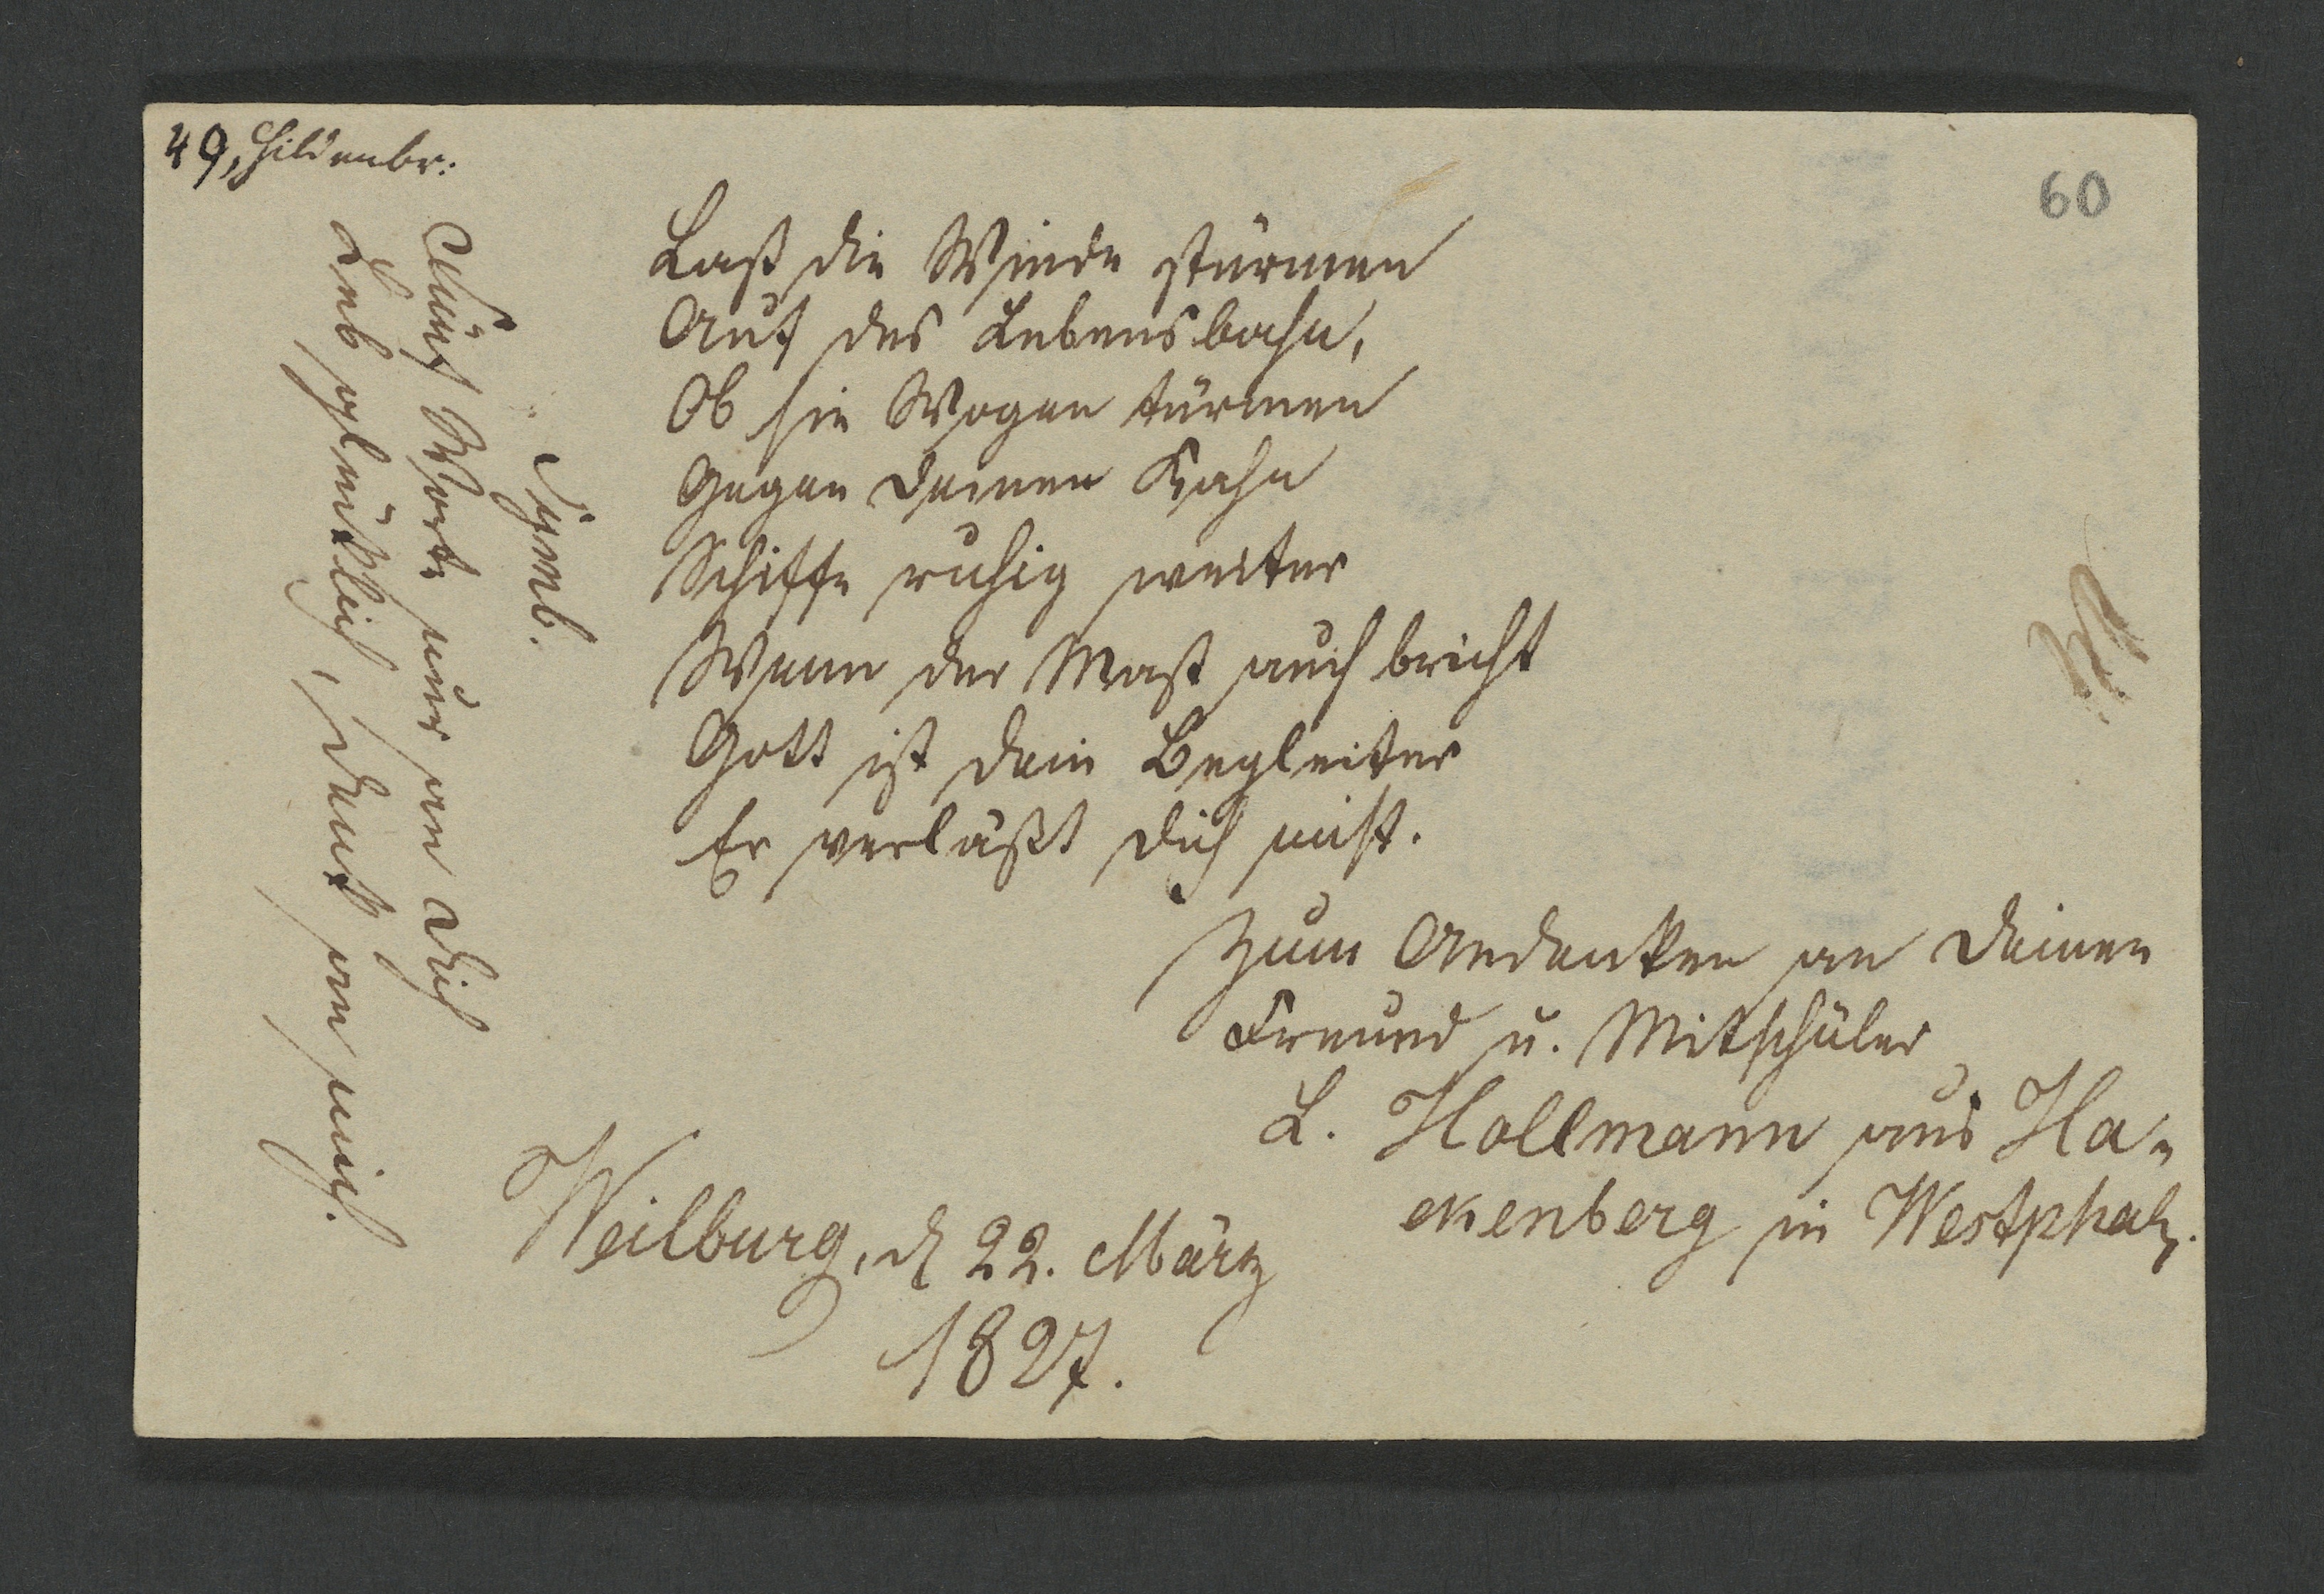 49, Hildenbr:
60
Laß die Winde stürmen
Auf des Lebensbahn,
Ob sie Wogen türmen
Gegen deinen Kahn
Schiffe ruhig weiter
Wenn der Mast auch bricht
Gott ist dein Begleiter
Er verläßt dich nicht.
Zum Andenken an deinen
Freund u. Mitschüler
L. Hollmann aus Ha-
ckenberg in Westphal.
Weilburg, d 22. März
1827.
Symb.
Fünf Worte nur an dich
Leb glücklich, denk an mich.